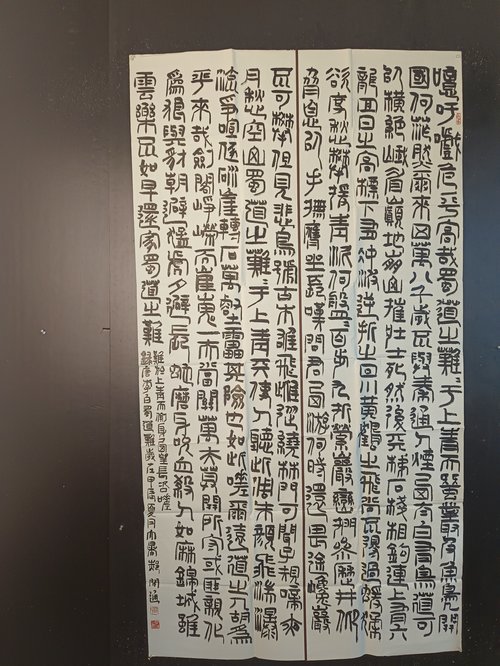 噫吁嚱危乎高哉蜀道之難〻于上青天蠶叢及魚鳧開
國何茫然爾來四萬八千歲不與秦通人煙西當太白有鳥道可
以橫絕峨眉巔地崩山摧壯士死然後天梯石棧相鉤連上有六
龍回日之高標下有衝波逆折之回川黃鶴之飛尚不得過猿猱
欲度愁攀援青泥何盤〻百步九折縈巖巒捫參歷井仰
脅息以手撫膺坐長嘆問君西遊何時還畏途巉巖
不可攀但見悲鳥號古木雄飛雌從繞林間聞子規啼夜
月愁空山蜀道之難〻于上青天使人聽此凋朱顏飛湍瀑
流爭喧豗砯崖轉石萬壑雷其險也如此嗟爾遠道之人胡為
乎來哉劍閣崢嶸而崔嵬一夫當關萬夫莫開所守或匪親化
為狼與豺朝避猛虎夕避長蛇磨牙吮血殺人如麻錦城雖
雲樂不如早還家蜀道之難
難於上青天側身西望長咨嗟
錄唐李白蜀道難歲在甲辰夏月